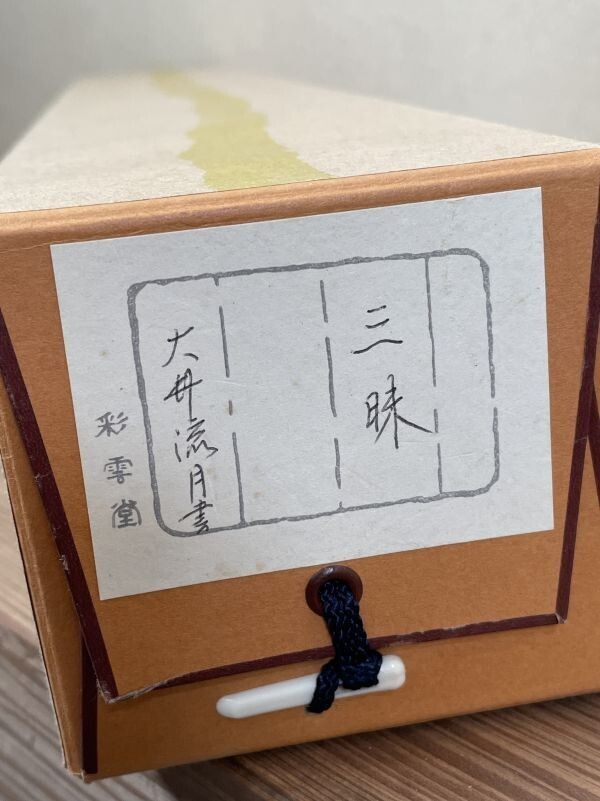 三昧
大井流月書
彩雲堂